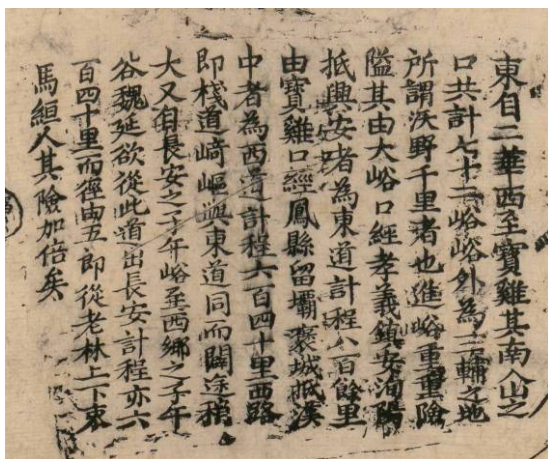 東自二華西至寶雞其南入山之
口共計七十二峪峪外為三輔之地
所謂沃野千里者也進峪重重險
隘其由大峪口經孝義鎮安洵陽
抵興安者為東道計程八百餘里
由寶雞口經鳳縣留壩褒城抵漢
中者為西道計程六百四十里西路
即棧道﨑嶇與東道同而闊途稍
大又自長安之子午峪至西鄉之子午
谷魏延欲從此道出長安計程亦六
百四十里而徑由五郎從老林上下束
馬縆人其險加倍矣